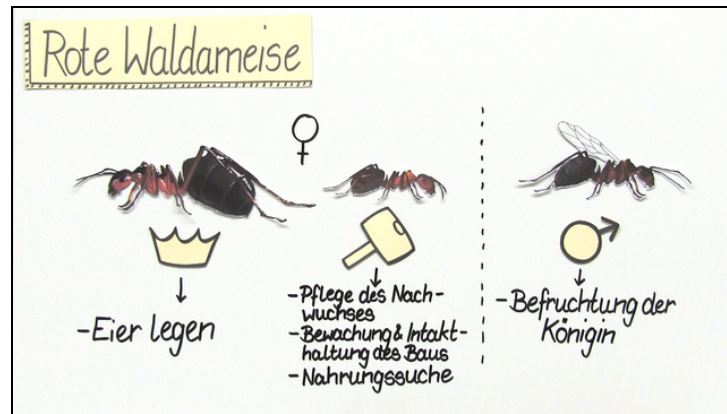 Rote Waldameise
-Eier legen
-Pflege des Nach-
wuchses
-Bewachung & Intakt-
haltung des Baus
-Nahrungssuche
-Befruchtung der
Königin